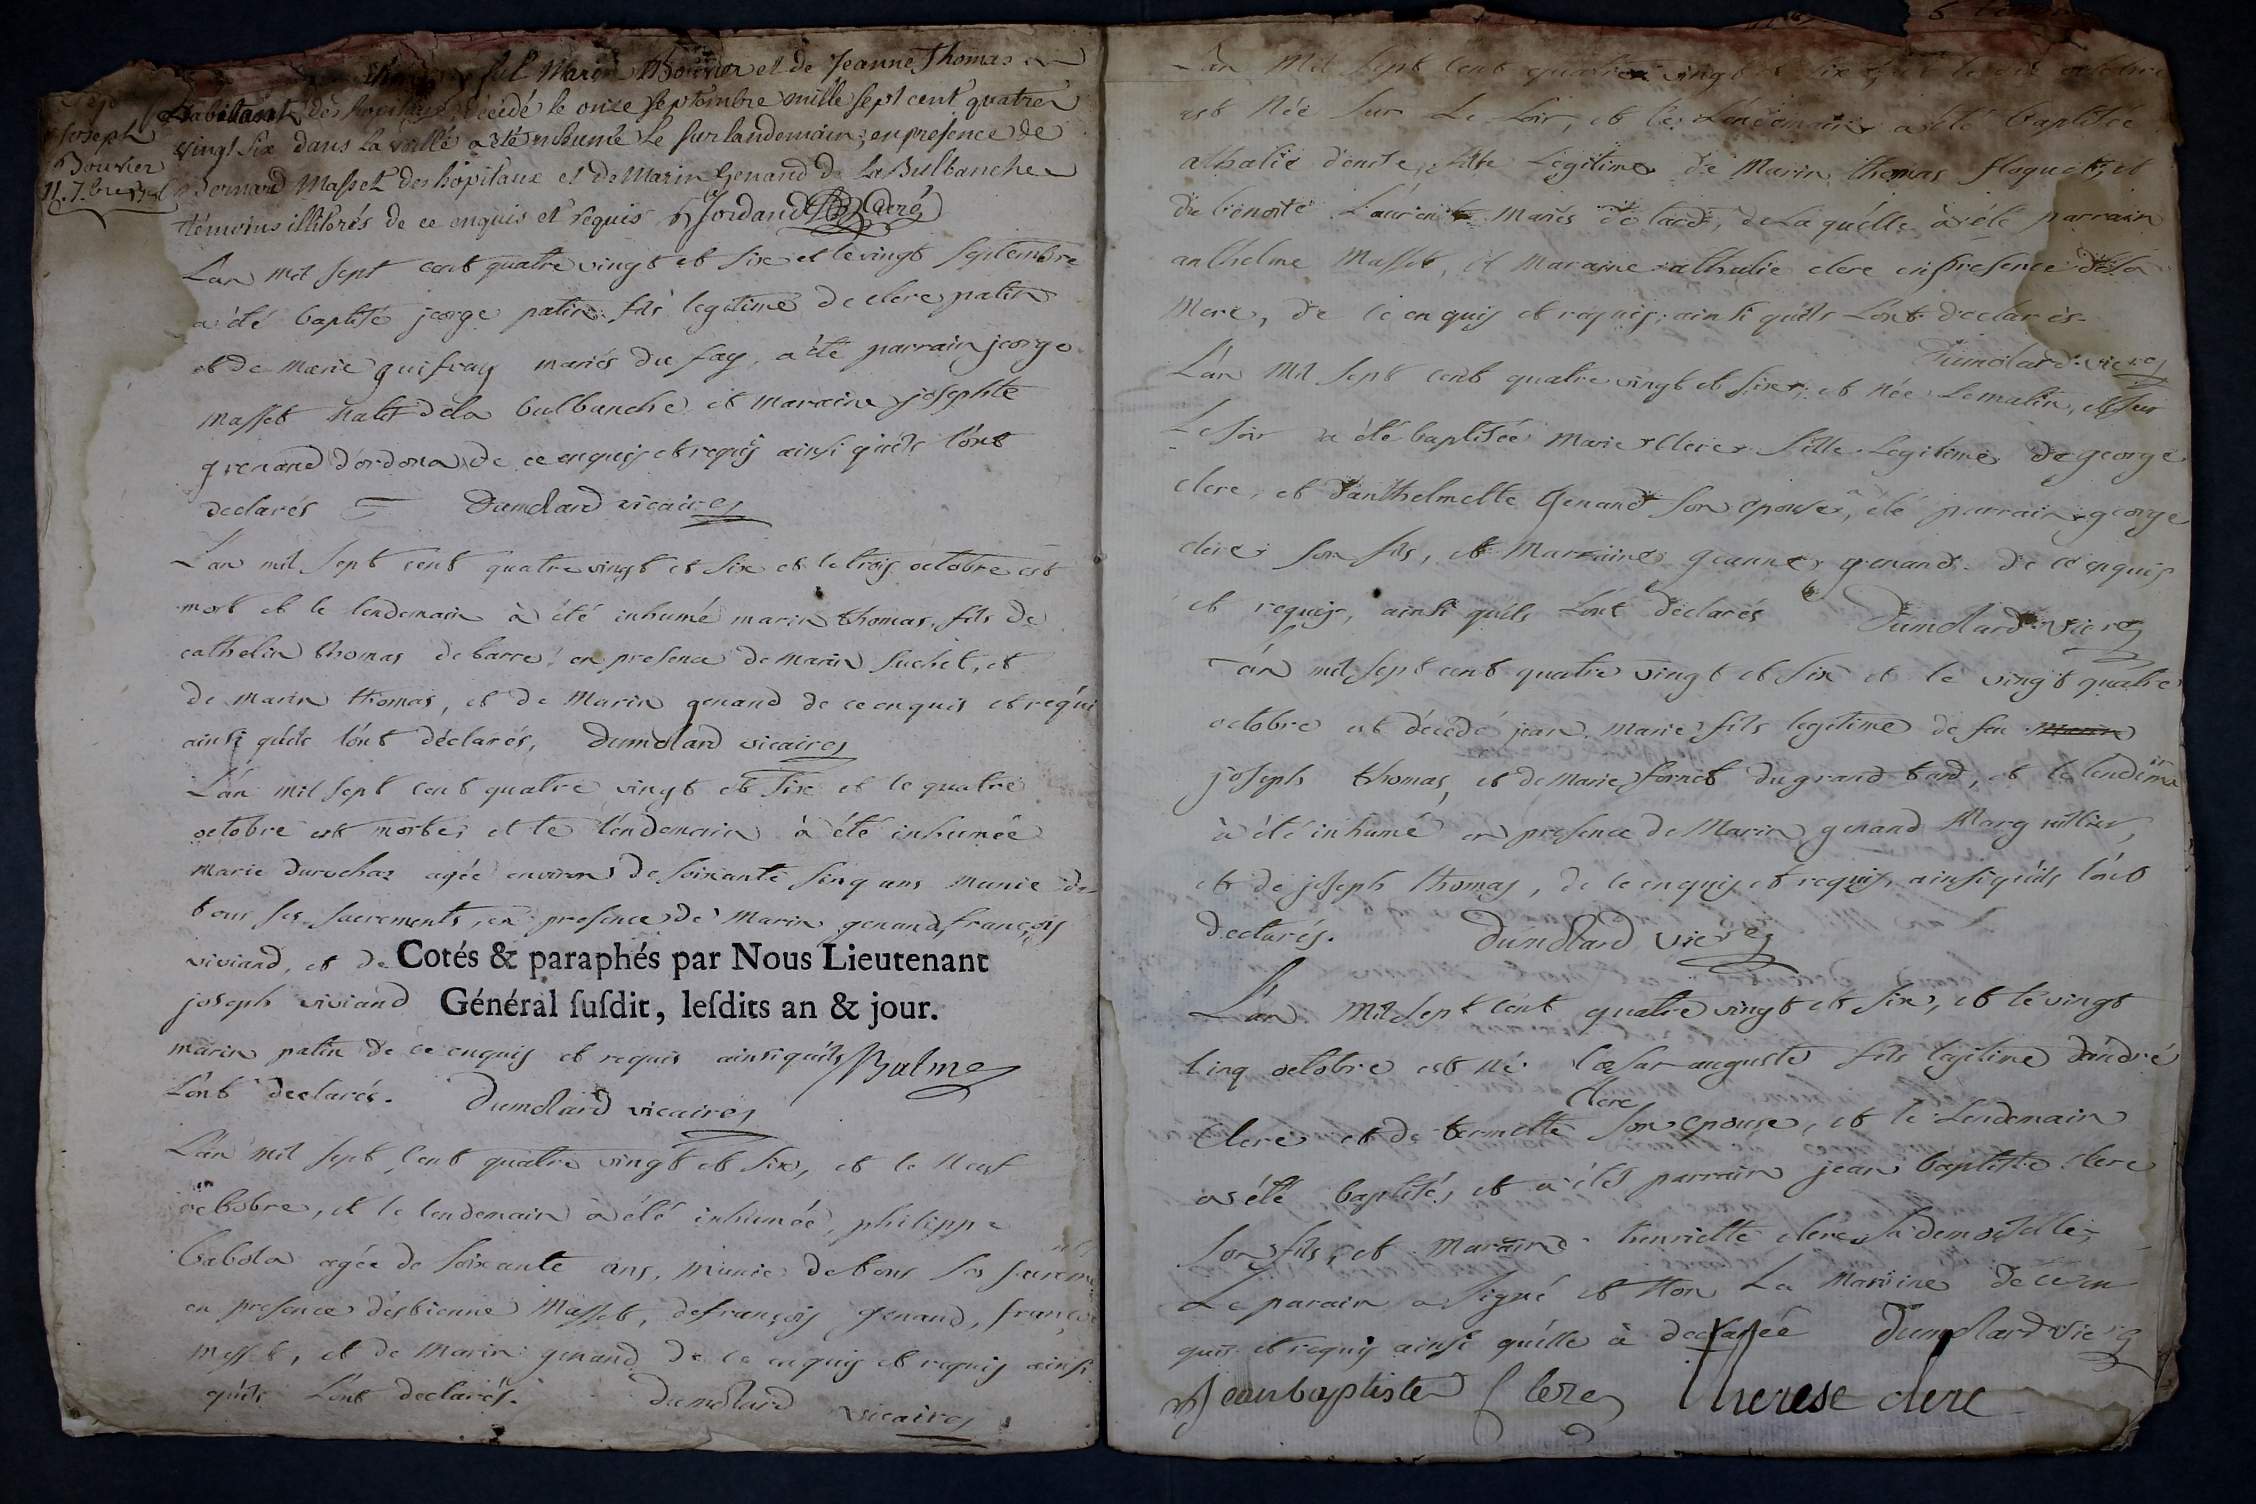 fils Marin Bouvier et de Jeanne Thomas
habitant des hopitaux, décédé le onze septembre mille sept cent quatre
vingt six dans la veillé a été inhumé le surlandemain; en presence de
Bernard Masset des hôpitaux et de Marin Genand de La Bulbanche
témoins illiterés de ce enquis et requis Jordand Curé
joseph
Bouvier
11. 7.bre 1786
L'an mil sept cent quatre vingt et six et le vingt septembre
a été baptisé jeorge patin fils legitime de clere patin
et de marie guifray mariés du fay, a été parrain jeorge
masset natif de la bulbanche et maraine josephte
grenand d'ordona de ce enquis et requis ainsi qu'ils l'ont
declarés Dumolard vicaire
L'an mil sept cent quatre vingt et six et le trois octobre est
mort et le lendemain à été inhumé marin thomas, fils de
cathelin thomas de barre, en presence de marin suchet, et
de marin thomas, et de Marin genand de ce enquis et requi
ainsi qu'ils l'ont déclarés, Dumolard vicaire
L'an mil sept cent quatre vingt et six et le quatre
octobre est morte; et le lendemain à été inhumée
marie durochaz agée environ de soixante sinq ans munie de
tous ses sacrements, en presence de Marin genand, françois
viviand, et de Cotés & paraphés par Nous Lieutenant
joseph viviand Général ſuſdit, leſdits an & jour.
marin patin de ce enquis et requis ainsi qu'ils Balme
L'ont declarés. Dumolard vicaire
L'an mil sept cent quatre vingt et six, et le neuf
octobre, et le lendemain à été inhumée, philippe
babola agée de soixante ans, munie de tous ses sacreme
nts
en presence d'estienne Masset, de françois genand, franco
messet, et de Marin genand de ce enquis et requis ainsi
qu'ils L'ont declarés. Dumolard
vicaire
L'an Mil sept cent quatre vingt et six et le six octobre
est née sur Le soir, et le Lendemain a été baptisée
athalie benoite, fille Légitime de Marin thomas floquet, et
de benoite Laurent mariés de tard, de La quelle à été parrain
anthelme Masset, et maraine athalie clere en presence de la
Mere, de ce enquis et requis; ainsi qu'ils L'ont declarés.
Dumolard vicre
L'an Mil sept cent quatre vingt et six, et née Lematin, et sur
Le soir a été baptisée Marie Clere fille Legitime de george
clere, et d'anthelmette Genand son epouse, a été parrain george
clere son fils, et Marraine geanne genand. de ce enquis
et requis, ainsi qu'ils L'ont déclarés Dumolard vicre
L'an mil sept cent quatre vingt et six et le vingt quatre
octobre est décédé jean marie fils legitime de feu Marin
joseph thomas, et de Marie fornet du grand tard, et le lendema
in
à été inhumé en presence de Marin genand Marguillier,
et de joseph thomas, de ce enquis et requis, ainsi qu'ils l'ont
declarés. Dumolard vicre
L'an Mil sept cent quatre vingt et six, et le vingt
cinq octobre est né cæsar auguste fils legitime d'andré
Clere
Clere et de termette son epouse, et le Lendemain
a été baptisé, et a été parrain jean baptiste clere
son fils, et Maraine henriette clere sa demoiselle,
Le parain a signé et Non La Maraine de ce en
quis et requis ainsi qu'elle à declarée Dumolard vicre
Jean baptiste Clere therese clere